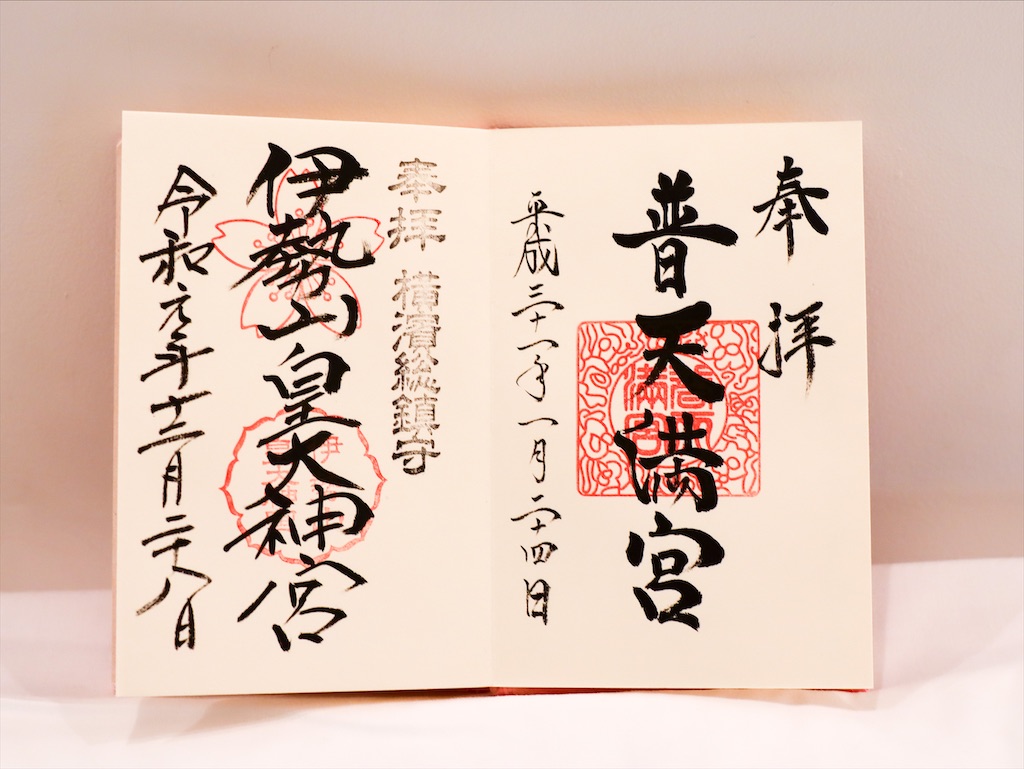 奉拝
普天満宮
平成三十一年一月二十四日
奉拝 横濱総鎮守
伊勢山皇大神宮
令和元年十二月二十八日